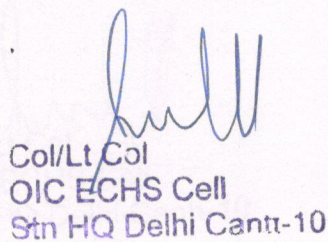 Col/Lt Col
OIC ECHS Cell
Stn HQ Delhi Cantt-10